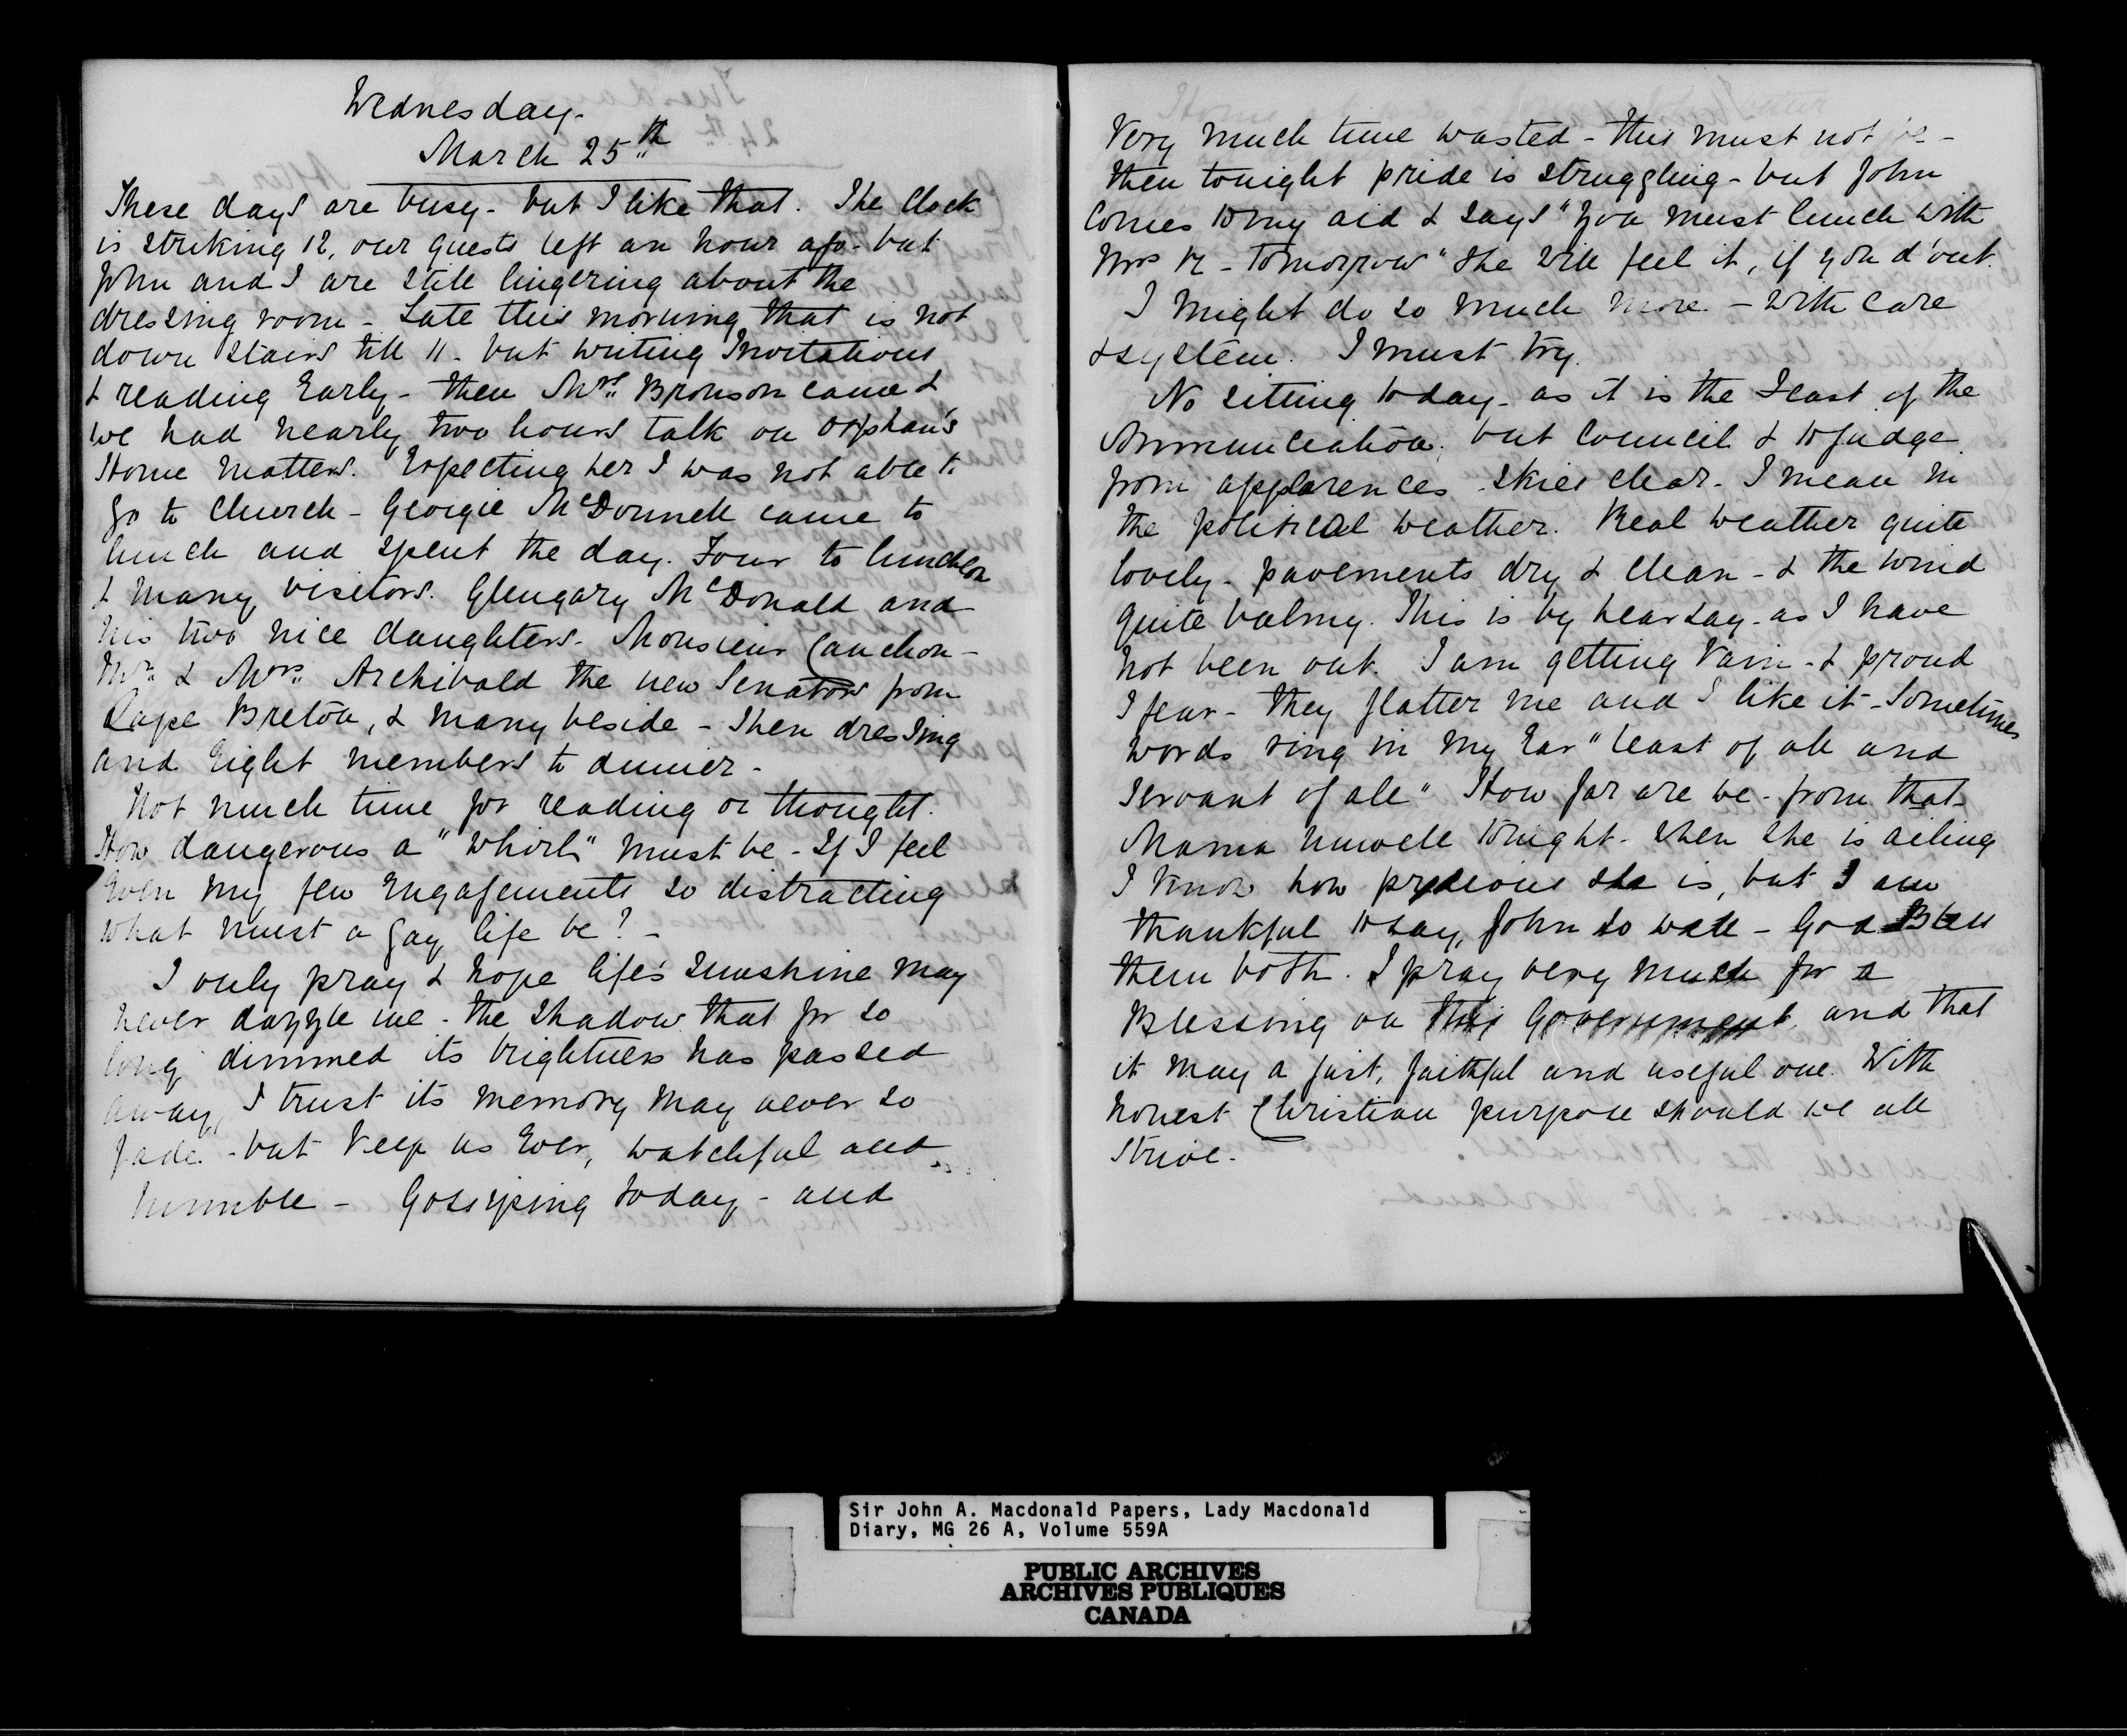 Wednesday.
March 25th
These days are busy - but I like that. The Clock
is striking 12, our guests left an hour ago - but
John and I are still lingering about the
dressing room - Late this morning that is not
down stairs till 11 - but writing Invitations
& reading Early - then Mrs. Bronson came &
we had nearly two hours talk on Orphan's
Home matters. Expecting her I was not able to
go to Church - Georgie McDonnell came to
lunch and spent the day. Four to luncheon
& many visitors. Glengary McDonald and
his two nice daughters. Monsieur Cauchon -
Mr. & Mrs. Archibald the new Senators from
Cape Breton, & many beside - Then dressing
and Eight members to dinner -
Not much time for reading or thought.
How dangerous a "whirl" must be - If I feel
Even my few Engagements so distracting
what must a gay life be? -
I only pray & hope life's sunshine may
never dazzle me - the shadow that for so
long dimmed its brightness has passed
away, I trust its memory may never so
fade - but keep us Ever, watchful and
humble - Gossiping today - and
Very much time wasted - this must not be -
then tonight pride is struggling - but John
Comes to my aid & says "you must lunch with
Mrs - Tomorrow" She will feel it, if you d'ont.
I might do so much more - with care
& system. I must try.
No sitting today - as it is the Feast of the
Annunciation, but Council & to judge
from appearences skies clear - I mean in
the political weather. Real weather quite
lovely - pavements dry & clean - & the wind
quite balmy. This is by hearsay - as I have
not been out. I am getting Vain - & proud
I fear - they flatter me and I like it - Sometimes
words ring in my Ear "least of all and
servant of all" How far are we - from that -
Mama unwell tonight - When she is ailing
I know how precious she is, but I am
thankful to say, John so well - God Bless
them both. I pray very much for a
Blessing on this Government, and that
it may a just, faithful and useful one. With
honest Christian purpose should we all
strive -
Sir John A. Macdonald Papers, Lady Macdonald
Diary, MG 26 A, Volume 559A
PUBLIC ARCHIVES
ARCHIVES PUBLIQUES
CANADA